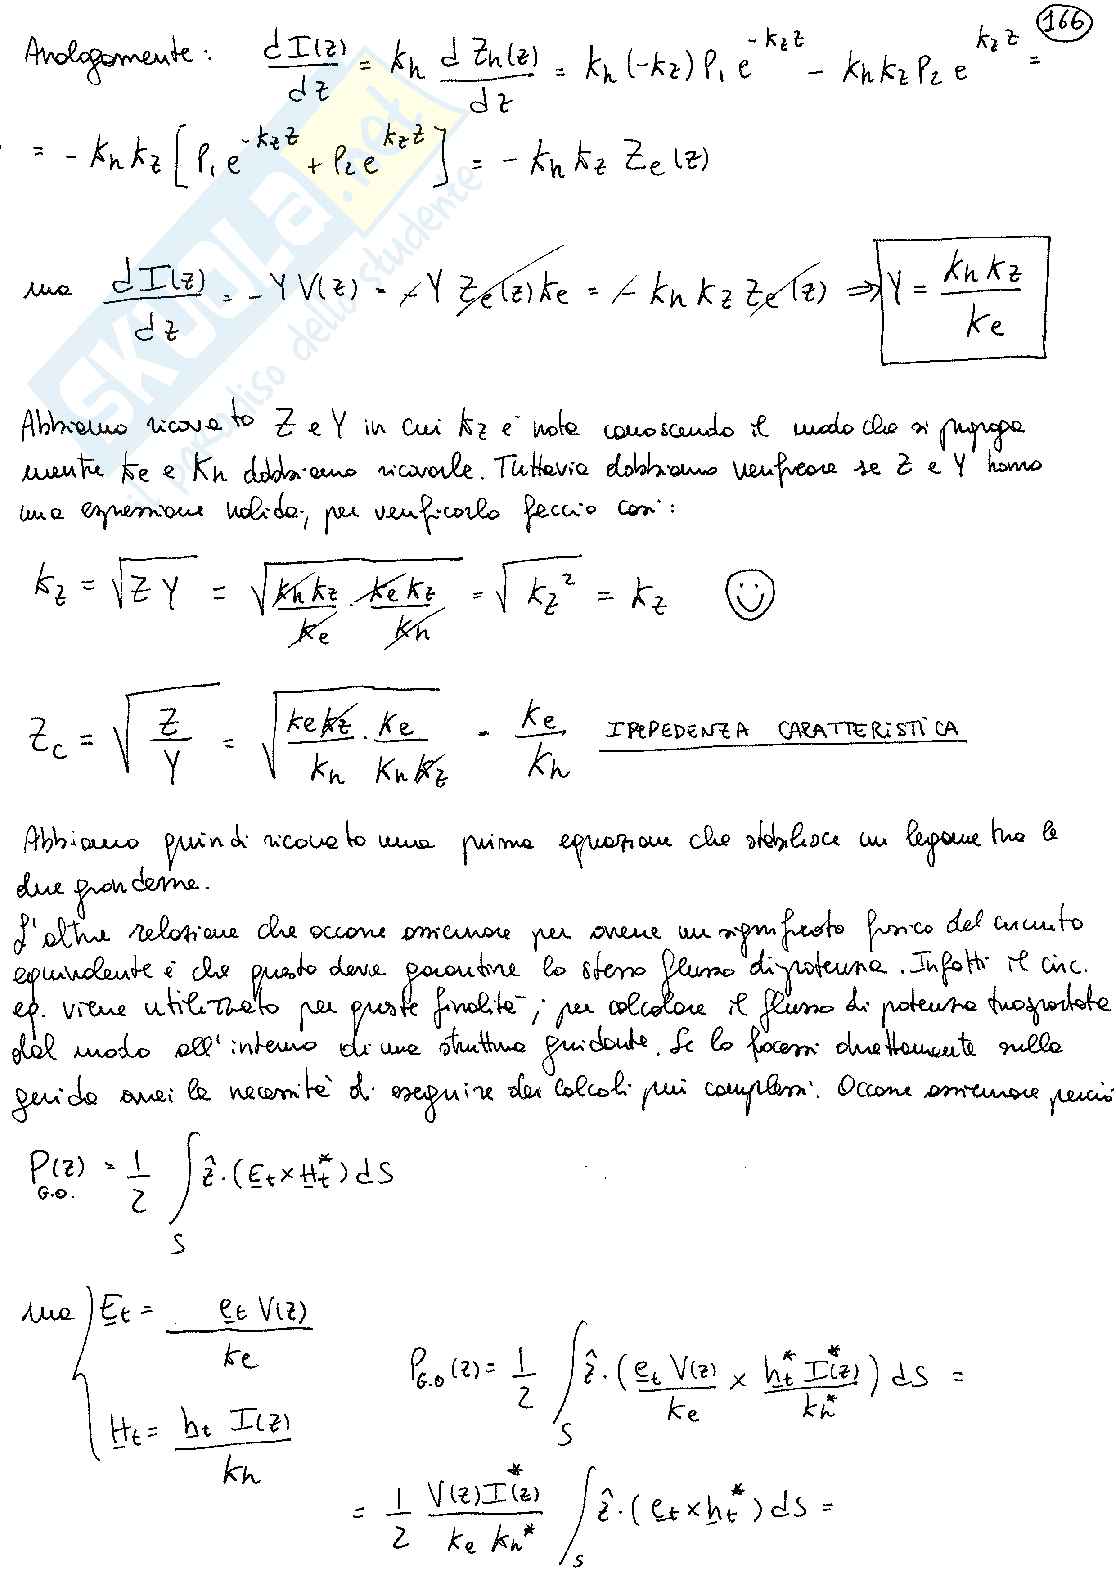 166
Analogamente: dI(z)/dz = kh d Zh(z)/dz = kh (-kz) P1 e^{-kz z} - kh kz P2 e^{kz z} =
= - kh kz [ P1 e^{-kz z} + P2 e^{kz z} ] = - kh kz Ze(z)
ma dI(z)/dz = - Y V(z) = - Y Ze(z) ke = - kh kz Ze(z) ⇒ Y = kh kz / ke
Abbiamo ricavato Z e Y in cui kz è nota conoscendo il modo che si propaga
mentre ke e kh dobbiamo ricavarle. Tuttavia dobbiamo verificare se Z e Y hanno
una espressione valida; per verificarlo faccio così:
kz = √(Z Y) = √(kh kz / ke · ke kz / kh) = √(kz²) = kz ☺
Zc = √(Z / Y) = √(ke kz / kh · ke / kh kz) = ke / kh IMPEDENZA CARATTERISTICA
Abbiamo quindi ricavato una prima equazione che stabilisce un legame tra le
due grandezze.
L'altra relazione che occorre assicurare per avere un significato fisico del circuito
equivalente è che questo deve garantire lo stesso flusso di potenza. Infatti il circ.
eq. viene utilizzato per queste finalità; per calcolare il flusso di potenza trasportata
dal modo all'interno di una struttura guidante. Se lo facessi direttamente sulla
guida avrei la necessità di eseguire dei calcoli più complessi. Occorre assicurare perciò
P(z) G.O. = 1/2 ∫S ẑ · (Et × Ht*) dS
ma { Et = et V(z) / ke
Ht = ht I(z) / kh
PG.O(z) = 1/2 ∫S ẑ · (et V(z) / ke × ht* I*(z) / kh*) dS =
= 1/2 V(z) I*(z) / ke kh* ∫S ẑ · (et × ht*) dS =
SKUOLA.net
il paradiso dello studente